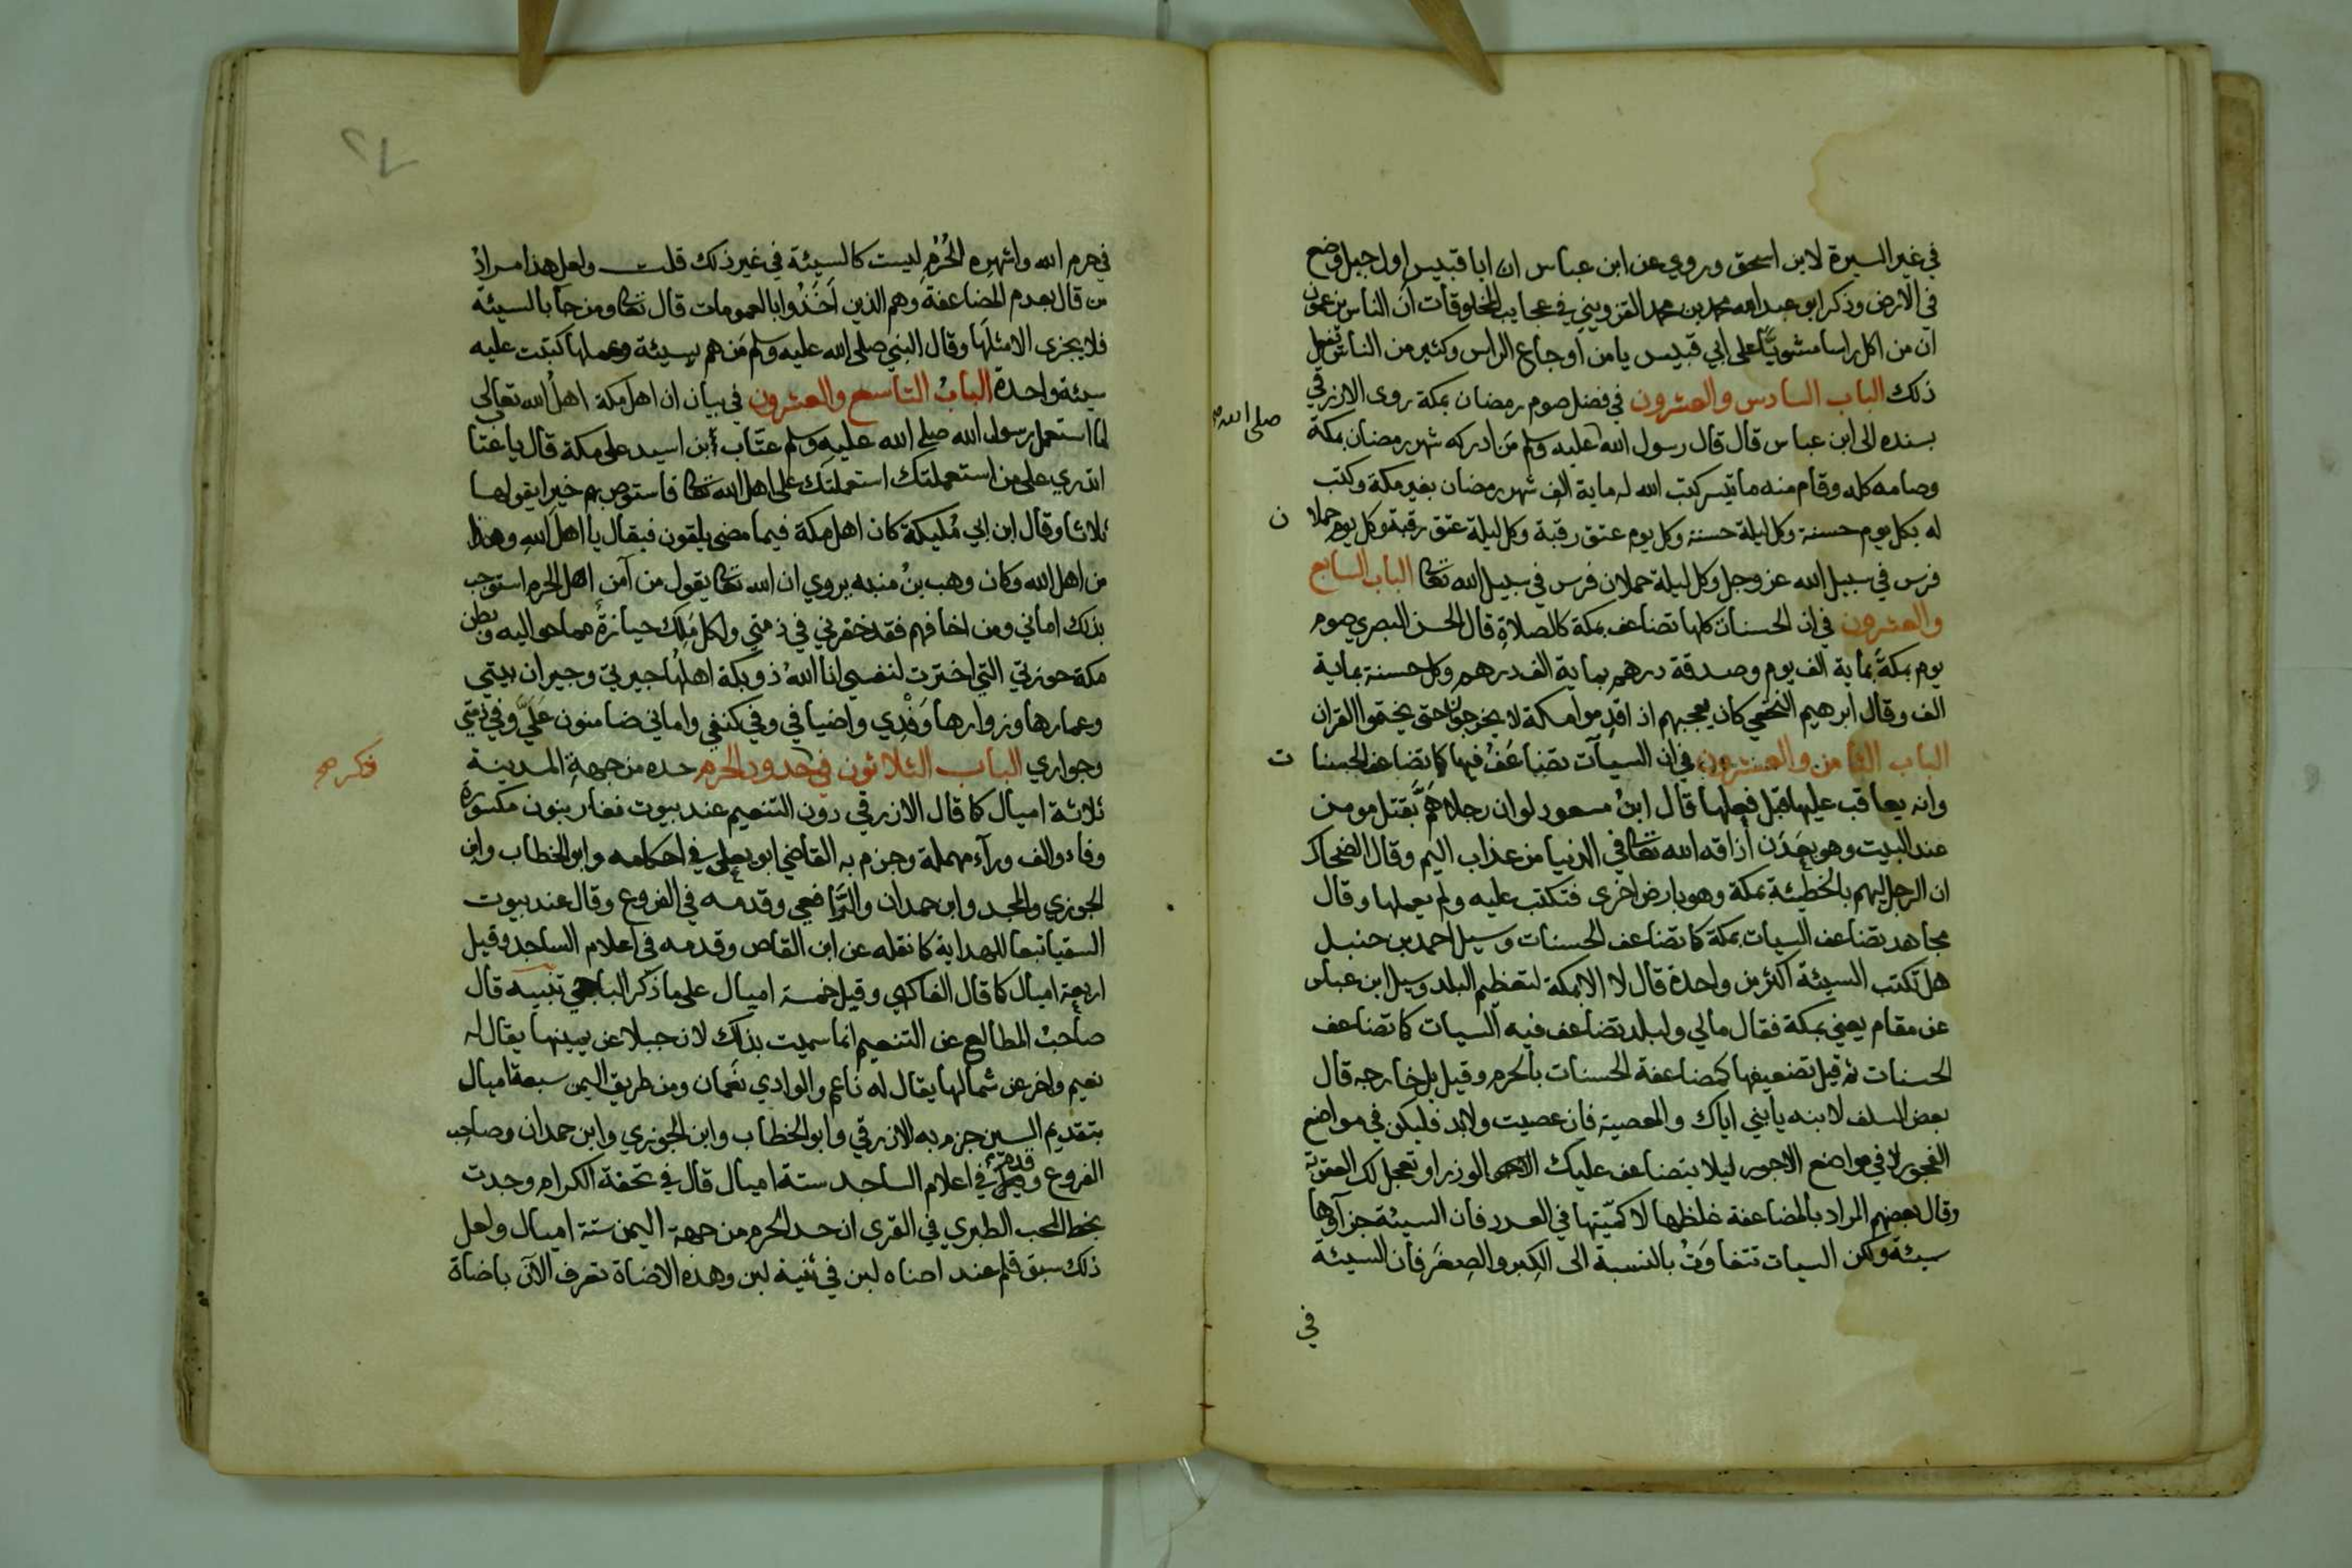 في غير السيرة لابن اسحق وروي عن ابن عباس ان ابا قبيس اول جبل وضع
في الارض وذكر ابو عبد الله محمد بن محمد القزويني في عجايب المخلوقات ان الناس يزعمون
ان من اكل راسا مشويا على ابي قبيس يا من اوجاع الراس وكثير من الناس تفعل
ذلك الباب السادس والعشرون في فضل صوم رمضان بمكة روى الازرقي
بسنده الى ابن عباس قال قال رسول الله عليه وسلم من ادركه شهر رمضان بمكة
صلى الله صح
وصامه كله وقام منه ما تيسر كتب الله له ماية الف شهر رمضان بغير مكة وكتب
له بكل يوم حسنة وكل ليلة حسنة وكل يوم عتق رقبة وكل ليلة عتق رقبة وكل يوم حملا
ن
فرس في سبيل الله عز وجل وكل ليلة حملان فرس في سبيل الله تعالى الباب السابع
والعشرون في ان الحسنات كلها تضاعف بمكة كالصلاة قال الحسن البصري صوم
يوم بمكة بماية الف يوم وصدقة درهم بماية الف درهم وكل حسنة بماية
الف وقال ابرهيم النخعي كان يعجبهم اذا قدموا مكة لا يخرجون حتى يختموا القران
الباب الثامن والعشرون في ان السيآت تضاعف فيها كما تضاعف الحسنا
ت
وانه يعاقب عليها قبل فعلها قال ابن مسعود لو ان رجلا هم بقتل مومن
عند البيت وهو بعدن أذاقه الله تعالى في الدنيا من عذاب اليم وقال الضحاك
ان الرجل ليهم بالخطيئة بمكة وهو بارض اخرى فتكتب عليه ولم يعملها وقال
مجاهد تضاعف السيات بمكة كما تضاعف الحسنات وسيل احمد بن حنبل
هل تكتب السيئة اكثر من واحدة قال لا الا بمكة لتعظيم البلد وسيل ابن عباس
عن مقام يعني بمكة فقال مالي ولبلد تضاعف فيه السيات كما تضاعف
الحسنات ثم قيل تضعيفها كمضاعفة الحسنات بالحرم وقيل بل خارجه قال
بعض السلف لابنه يا بني اياك والمعصية فان عصيت ولابد فليكن في مواضع
الفجور لا في مواضع الاجور ليلا يتضاعف عليك الوزر او تعجل لك العقوبة
وقال بعضهم المراد بالمضاعفة غلظها لا كميتها في العدد فان السيئة جزآوها
سيئة ولكن السيات تتفاوت بالنسبة الى الكبر والصغر فان السيئة
في
٢٧
في حرم الله واشهره الحرم ليست كالسيئة في غير ذلك قلت ولعل هذا مراد
من قال بعدم المضاعفة وهم الذين اخذوا بالعمومات قال تعالى ومن جآ بالسيئة
فلا يجزى الا مثلها وقال النبي صلى الله عليه وسلم من هم بسيئة وعملها كتبت عليه
سيئة واحدة الباب التاسع والعشرون في بيان ان اهل مكة اهل الله تعالى
لما استعمل رسول الله صلى الله عليه وسلم عتاب ابن اسيد على مكة قال يا عتا
اتدري على من استعملتك استعملتك على اهل الله تعالى فاستوص بهم خيرا يقولها
ثلاثا وقال ابن ابي مليكة كان اهل مكة فيما مضى يلقون فيقال يا اهل الله وهذا
من اهل الله وكان وهب بن منبه يروي ان الله تعالى يقول من آمن اهل الحرم استوجب
بذلك اماني ومن اخافهم فقد خفرني في ذمتي ولكل ملك حيازة مما حواليه وبطن
مكة حوزتي التي اخترت لنفسي انا الله ذو بكة اهلها جيرتي وجيران بيتي
وعمارها وزوارها وفدي واضيافي وفي كنفي واماني ضامنون علي وفي ذمتي
وجواري الباب الثلاثون في حدود الحرم حده من جهة المدينة
ذكر صح
ثلاثة اميال كما قال الازرقي دون التنعيم عند بيوت نفار بنون مكسورة
وفاء والف ورآء مهملة وجزم به القاضي ابو يعلى في احكامه وابو الخطاب وابن
الجوزي والمجد وابن حمدان والرافعي وقدمه في الفروع وقال عند بيوت
السقيا تبعا للهداية كما نقله عن ابن القاص وقدمه في اعلام الساجد وقيل
اربعة اميال كما قال الفاكهي وقيل خمسة اميال على ما ذكر الباجي تنبيه قال
صاحب المطالع عن التنعيم انما سميت بذلك لان جبلا عن يمينها يقال له
نعيم واخر عن شمالها يقال له ناعم والوادي نعمان ومن طريق اليمن سبعة اميال
بتقديم السين جزم به الازرقي وابو الخطاب وابن الجوزي وابن حمدان وصاحب
الفروع وقدم في اعلام الساجد ستة اميال قال في تحفة الكرام وجدت
بخط المحب الطبري في القرى ان حد الحرم من جهة اليمن ستة اميال ولعل
ذلك سبق قلم عند اضاه لبن في ثنية لبن وهذه الاضاة تعرف الآن باضاة